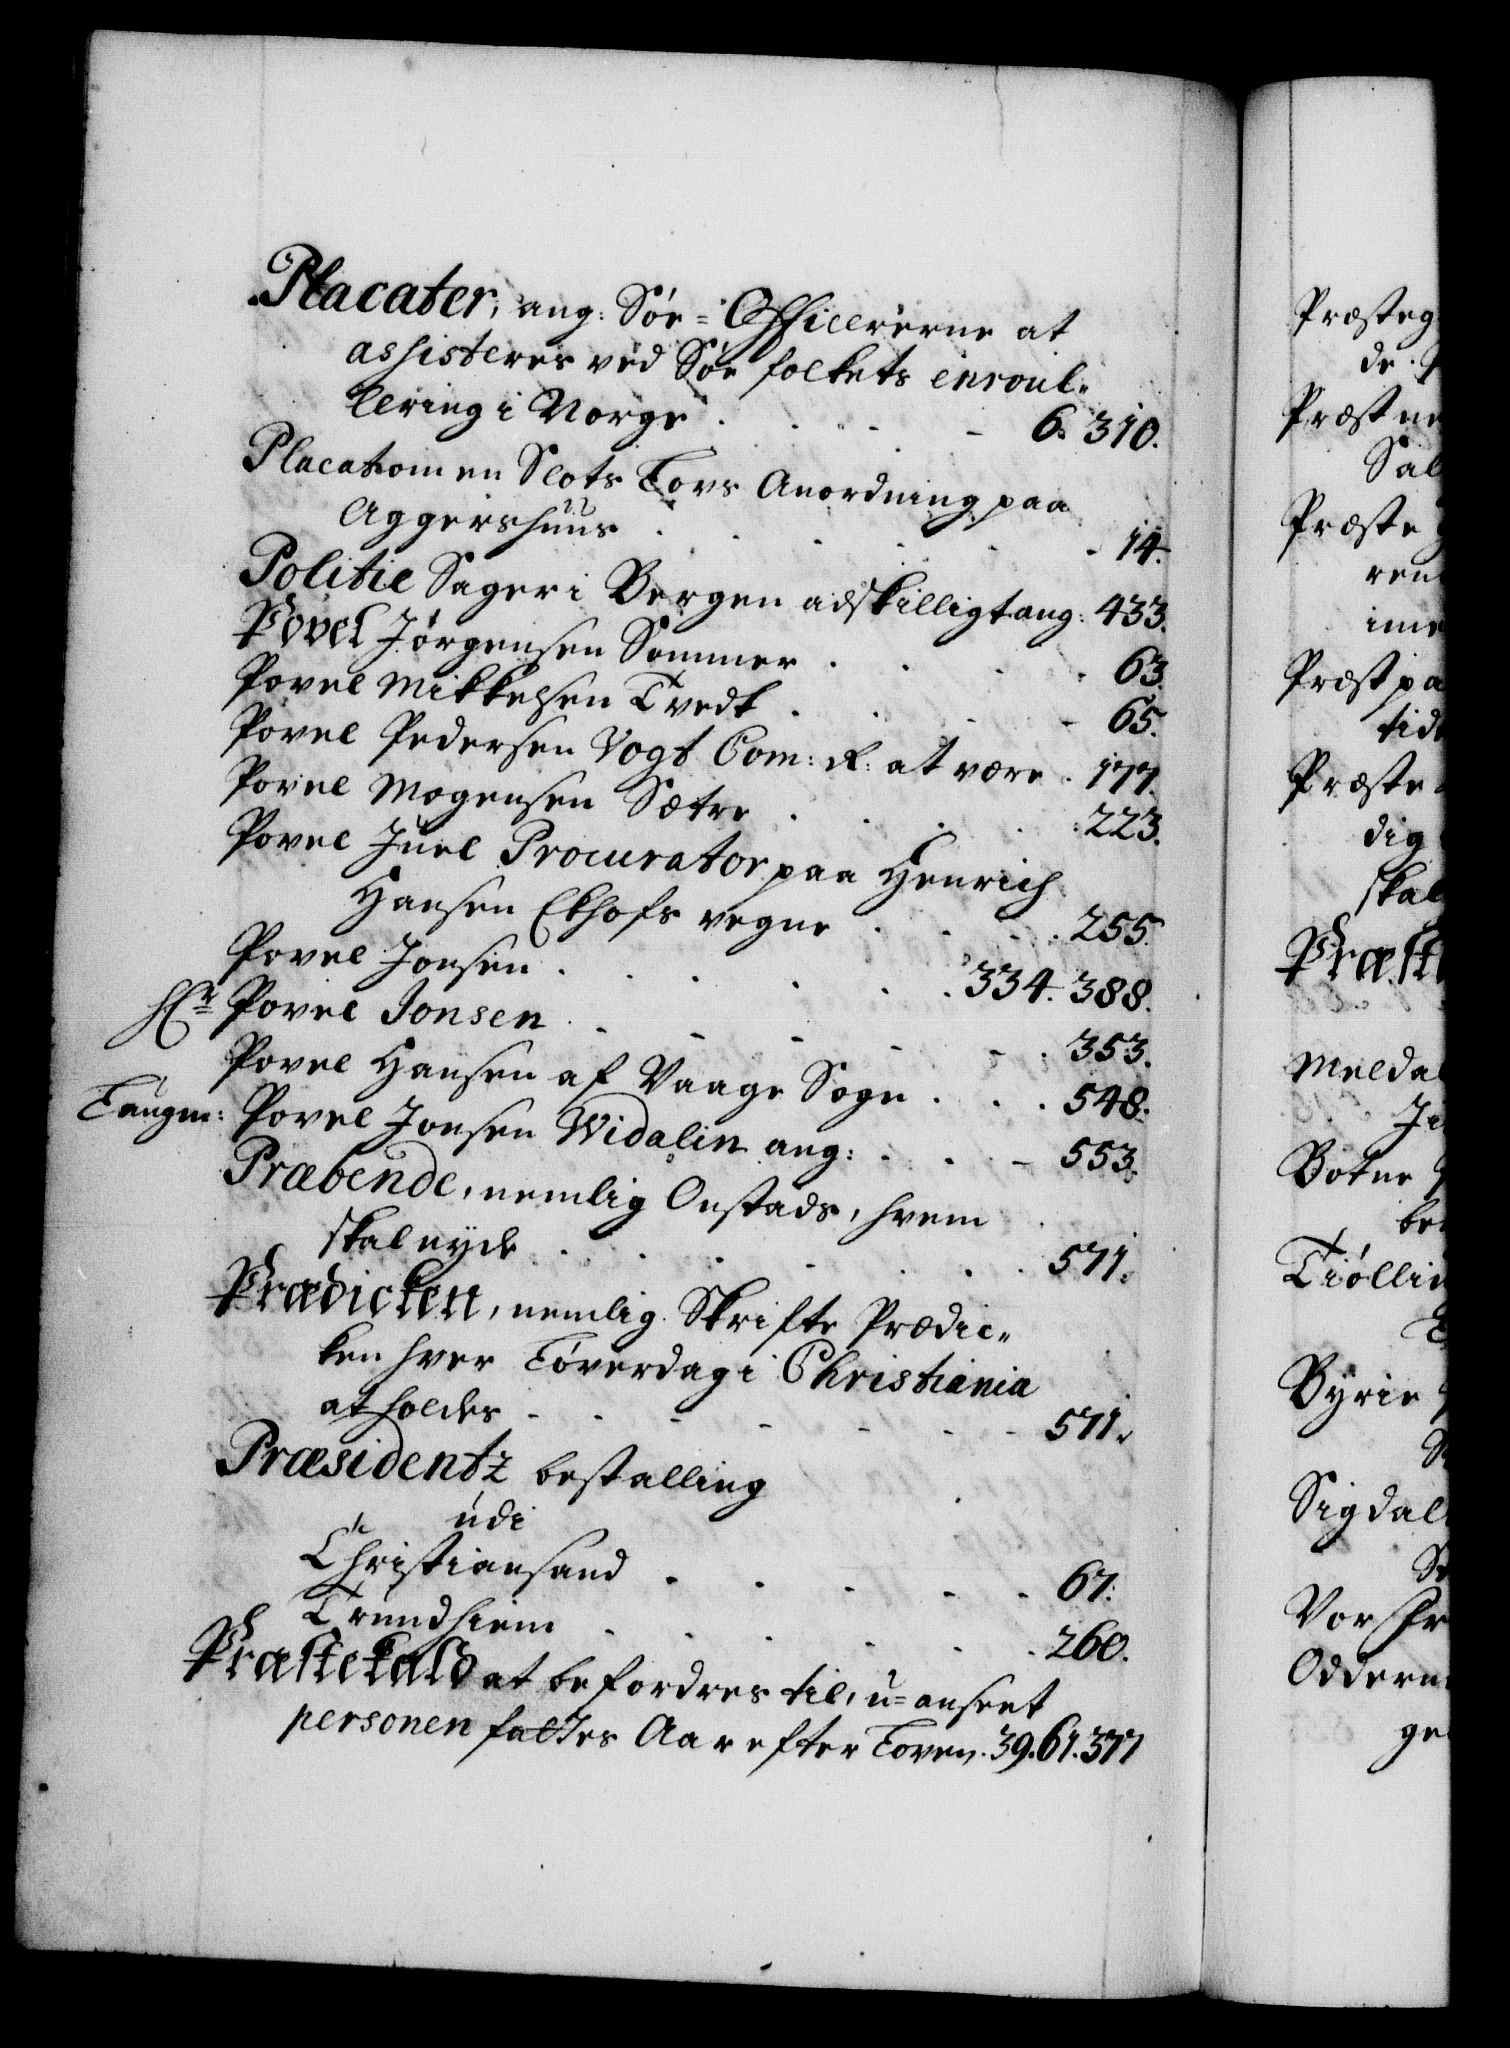 Placater, ang: Söe-Officererne at
assisteres ved Söe folkets enroul-
lering i Norge . . . - 6. 310.
Placat om en Slots Lovs Anordning paa
Aggershuus . . . . - 14.
Politie Sager i Bergen adskilligt ang: 433.
Povel Jörgensen Sommer . . . . 63.
Povel Mikkelsen Tvedt . . . - 65.
Povel Pedersen Vogt Com: R: at være . 177.
Povel Mogensen Sætre . . . . 223.
Povel Juel Procurator paa Henrich
Hansen Ekhofs vegne . . . . 255.
Povel Jonsen . . . . . 334. 388.
Hr Povel Jonsen . - - - - - . 353.
Povel Hansen af Vaage Sogn . . . 548.
Laugm: Povel Jonsen Widalin ang: . . . - 553.
Præbende, nemlig Onstads, hvem
skal nyde . . . . . . 571.
Prædicken, nemlig Skrifte Prædic-
ken hver Löverdag i Christiania
at holdes - - - - - - - 571.
Præsidentz bestalling
udi
Christiansand . . . - - 67.
Trundhiem . . . . . . 260.
Præstekald at befordres til, u-anseet
personen fattes Aar efter Loven. 39. 61. 377
Præsteg
de.
Præstne
Sal
Præste
ren
ime
Præst pa
tid
Præste
dig
skal
Præst
Meldal
Botne
Tiöllin
Byrie
Sigdal
Vor Fr
Oddern
ge